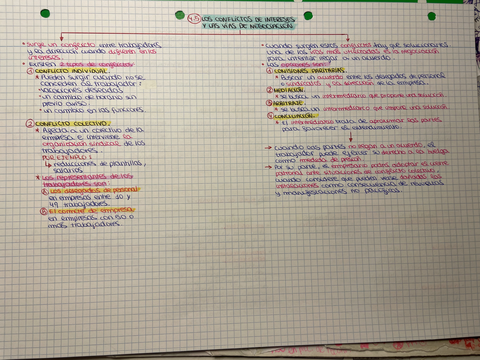 4.5 LOS CONFLICTOS DE INTERESES
Y LAS VÍAS DE NEGOCIACIÓN
* Surge un conflicto entre trabajadores
y la dirección cuando difieren en los
intereses.
* Existen 2 tipos de conflictos:
① CONFLICTO INDIVIDUAL.
* Pueden surgir cuando no se
conceden al trabajador:
* vacaciones deseadas
* un cambio de horario sin
previo aviso.
* un cambio en las funciones.
② CONFLICTO COLECTIVO.
* Afecta a un colectivo de la
empresa e interviene la
organización sindical de los
trabajadores
POR EJEMPLO:
↳ reducciones de plantillas,
salarios
* Los representantes de los
trabajadores son
Ⓐ Los delegados de personal
en empresas entre 10 y
49 trabajadores.
Ⓑ El comité de empresa
en empresas con 50 o
más trabajadores.
* Cuando surgen estos conflictos hay que solucionarlos
Una de las vías más utilizadas es la negociación
para intentar llegar a un acuerdo.
* Las opciones son:
① COMISIONES PARITARIAS.
* Buscar un acuerdo entre los delegados de personal
o sindicatos y la dirección de la empresa.
② MEDIACIÓN.
* Se busca un intermediario que propone una solución
③ ARBITRAJE.
* Se busca un intermediario que impone una solución
④ CONCILIACIÓN.
* El intermediario trata de aproximar las partes
para favorecer el entendimiento.
→ Cuando las partes no llegan a un acuerdo, el
trabajador puede ejercer su derecho a la huelga
como medida de presión.
→ Por su parte, el empresario puede adoptar el cierre
patronal ante situaciones de conflicto colectivo,
cuando considere que pueden verse dañadas las
instalaciones como consecuencia de revueltas
y manifestaciones no pacíficas.